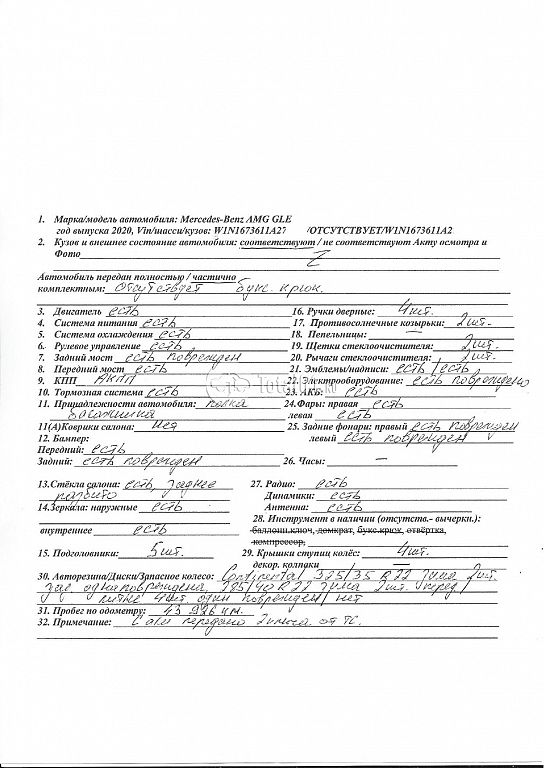 1. Марка/модель автомобиля: Mercedes-Benz AMG GLE
год выпуска 2020, Vin/шасси/кузов: W1N1673611A27 /ОТСУТСТВУЕТ/W1N1673611A2
2. Кузов и внешнее состояние автомобиля: соответствуют / не соответствуют Акту осмотра и
Фото Z
Автомобиль передан полностью / частично
комплектным: отсутствует букс. крюк.
3. Двигатель есть 16. Ручки дверные: 4шт.
4. Система питания есть 17. Противосолнечные козырьки: 2шт.
5. Система охлаждения есть 18. Пепельницы: —
6. Рулевое управление есть 19. Щетки стеклоочистителя: 2шт.
7. Задний мост есть поврежден 20. Рычаги стеклоочистителя: 2шт.
8. Передний мост есть 21. Эмблемы/надписи: есть /есть
9. КПП АКПП 22. Электрооборудование: есть повреждено
10. Тормозная система есть 23. АКБ: есть
11. Принадлежности автомобиля: полка 24.Фары: правая есть
багажника левая есть
11(А)Коврики салона: нет 25. Задние фонари: правый есть поврежден
12. Бампер: левый есть поврежден
Передний: есть
Задний: есть поврежден 26. Часы: —
13.Стёкла салона: есть, заднее 27. Радио: есть
разбито Динамики: есть
14.Зеркала: наружные есть Антенна: есть
28. Инструмент в наличии (отсутств.- вычеркн.):
внутреннее есть баллонн.ключ, домкрат, букс.крюк, отвёртка,
компрессор,
15. Подголовники: 5шт. 29. Крышки ступиц колёс: 4шт.
декор. колпаки —
30. Авторезина/Диски/Запасное колесо: Continental 325/35 R22 зима 2шт.
зад одна повреждена, 285/40 R22 зима 2шт. перед/
литые 4шт один поврежден/ нет
31. Пробег по одометру: 43 926 км.
32. Примечание: передано 2 ключа от ТС.